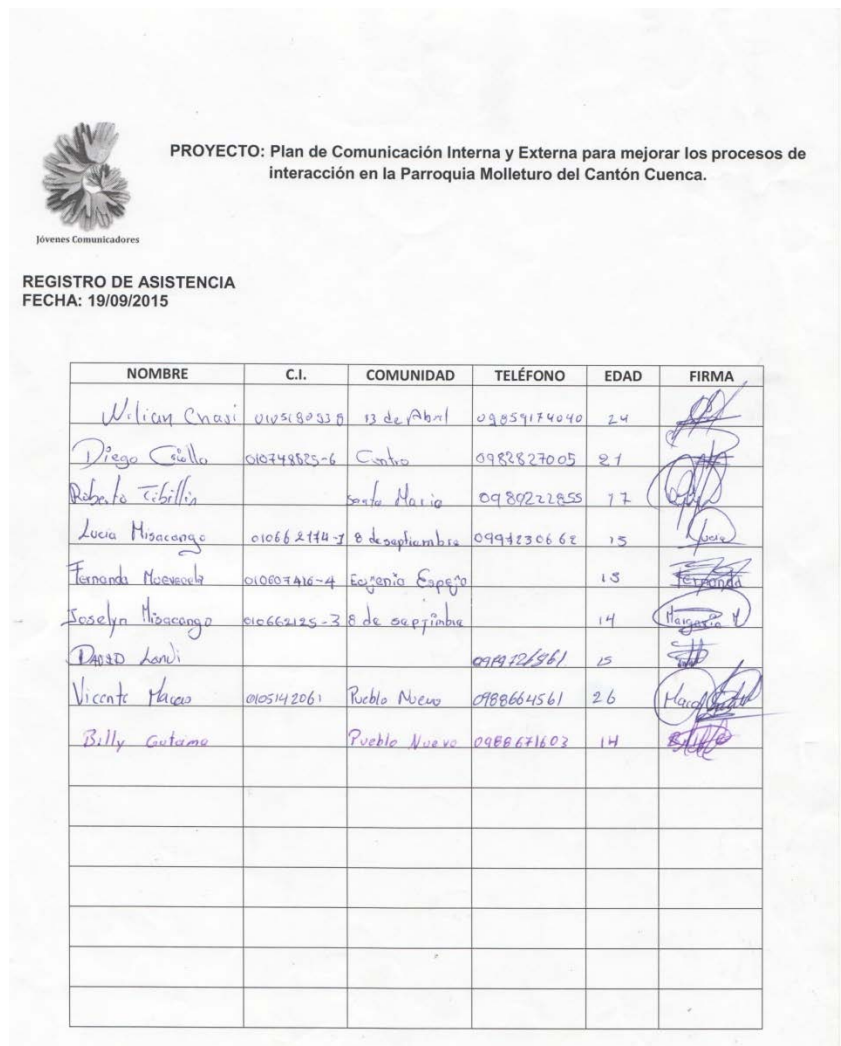 PROYECTO: Plan de Comunicación Interna y Externa para mejorar los procesos de
interacción en la Parroquia Molleturo del Cantón Cuenca.
Jóvenes Comunicadores
REGISTRO DE ASISTENCIA
FECHA: 19/09/2015
NOMBRE C.I. COMUNIDAD TELÉFONO EDAD FIRMA
Wilian Chasi 13 de Abril 09859174040 24
Diego 010748825-6 Centro 0982827005 21
Roberto Tibillin Santa Maria 0989222855 17
Lucia Misacango 8 de septiembre 0994230662 15 Lucia
Fernanda 010607416-4 Eugenio Espejo 15 Fernanda
Joselyn Misacango 010662125-3 8 de septimbre 14 Margarita M
Landi 15
Vicente Macas 0105142061 Pueblo Nuevo 0988664561 26
Billy Gutama Pueblo Nuevo 0988671603 14